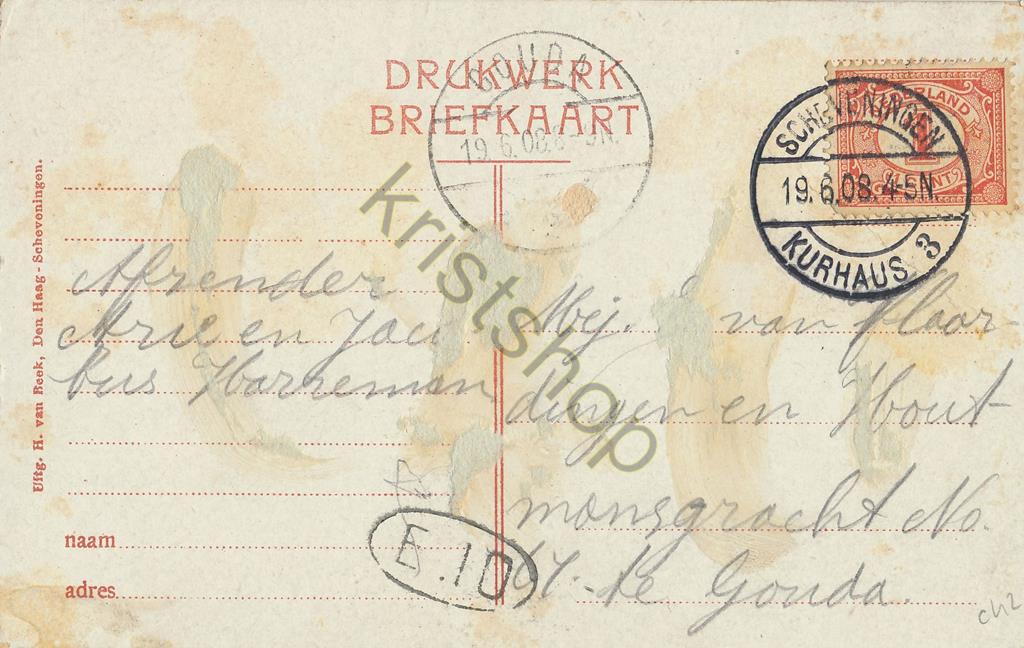 DRUKWERK
BRIEFKAART
GOUDA
19.6.08.8-9N.
NEDERLAND
1
CENT
SCHEVENINGEN
19.6.08.4-5N.
KURHAUS 3
Uitg. H. van Beek, Den Haag - Scheveningen.
kristshop
Afzender
Arie en Jaco
bus Harreman
Mej. van Vlaar-
dingen en Hout-
mansgracht No.
te Gouda.
naam
adres
E.10
ch2